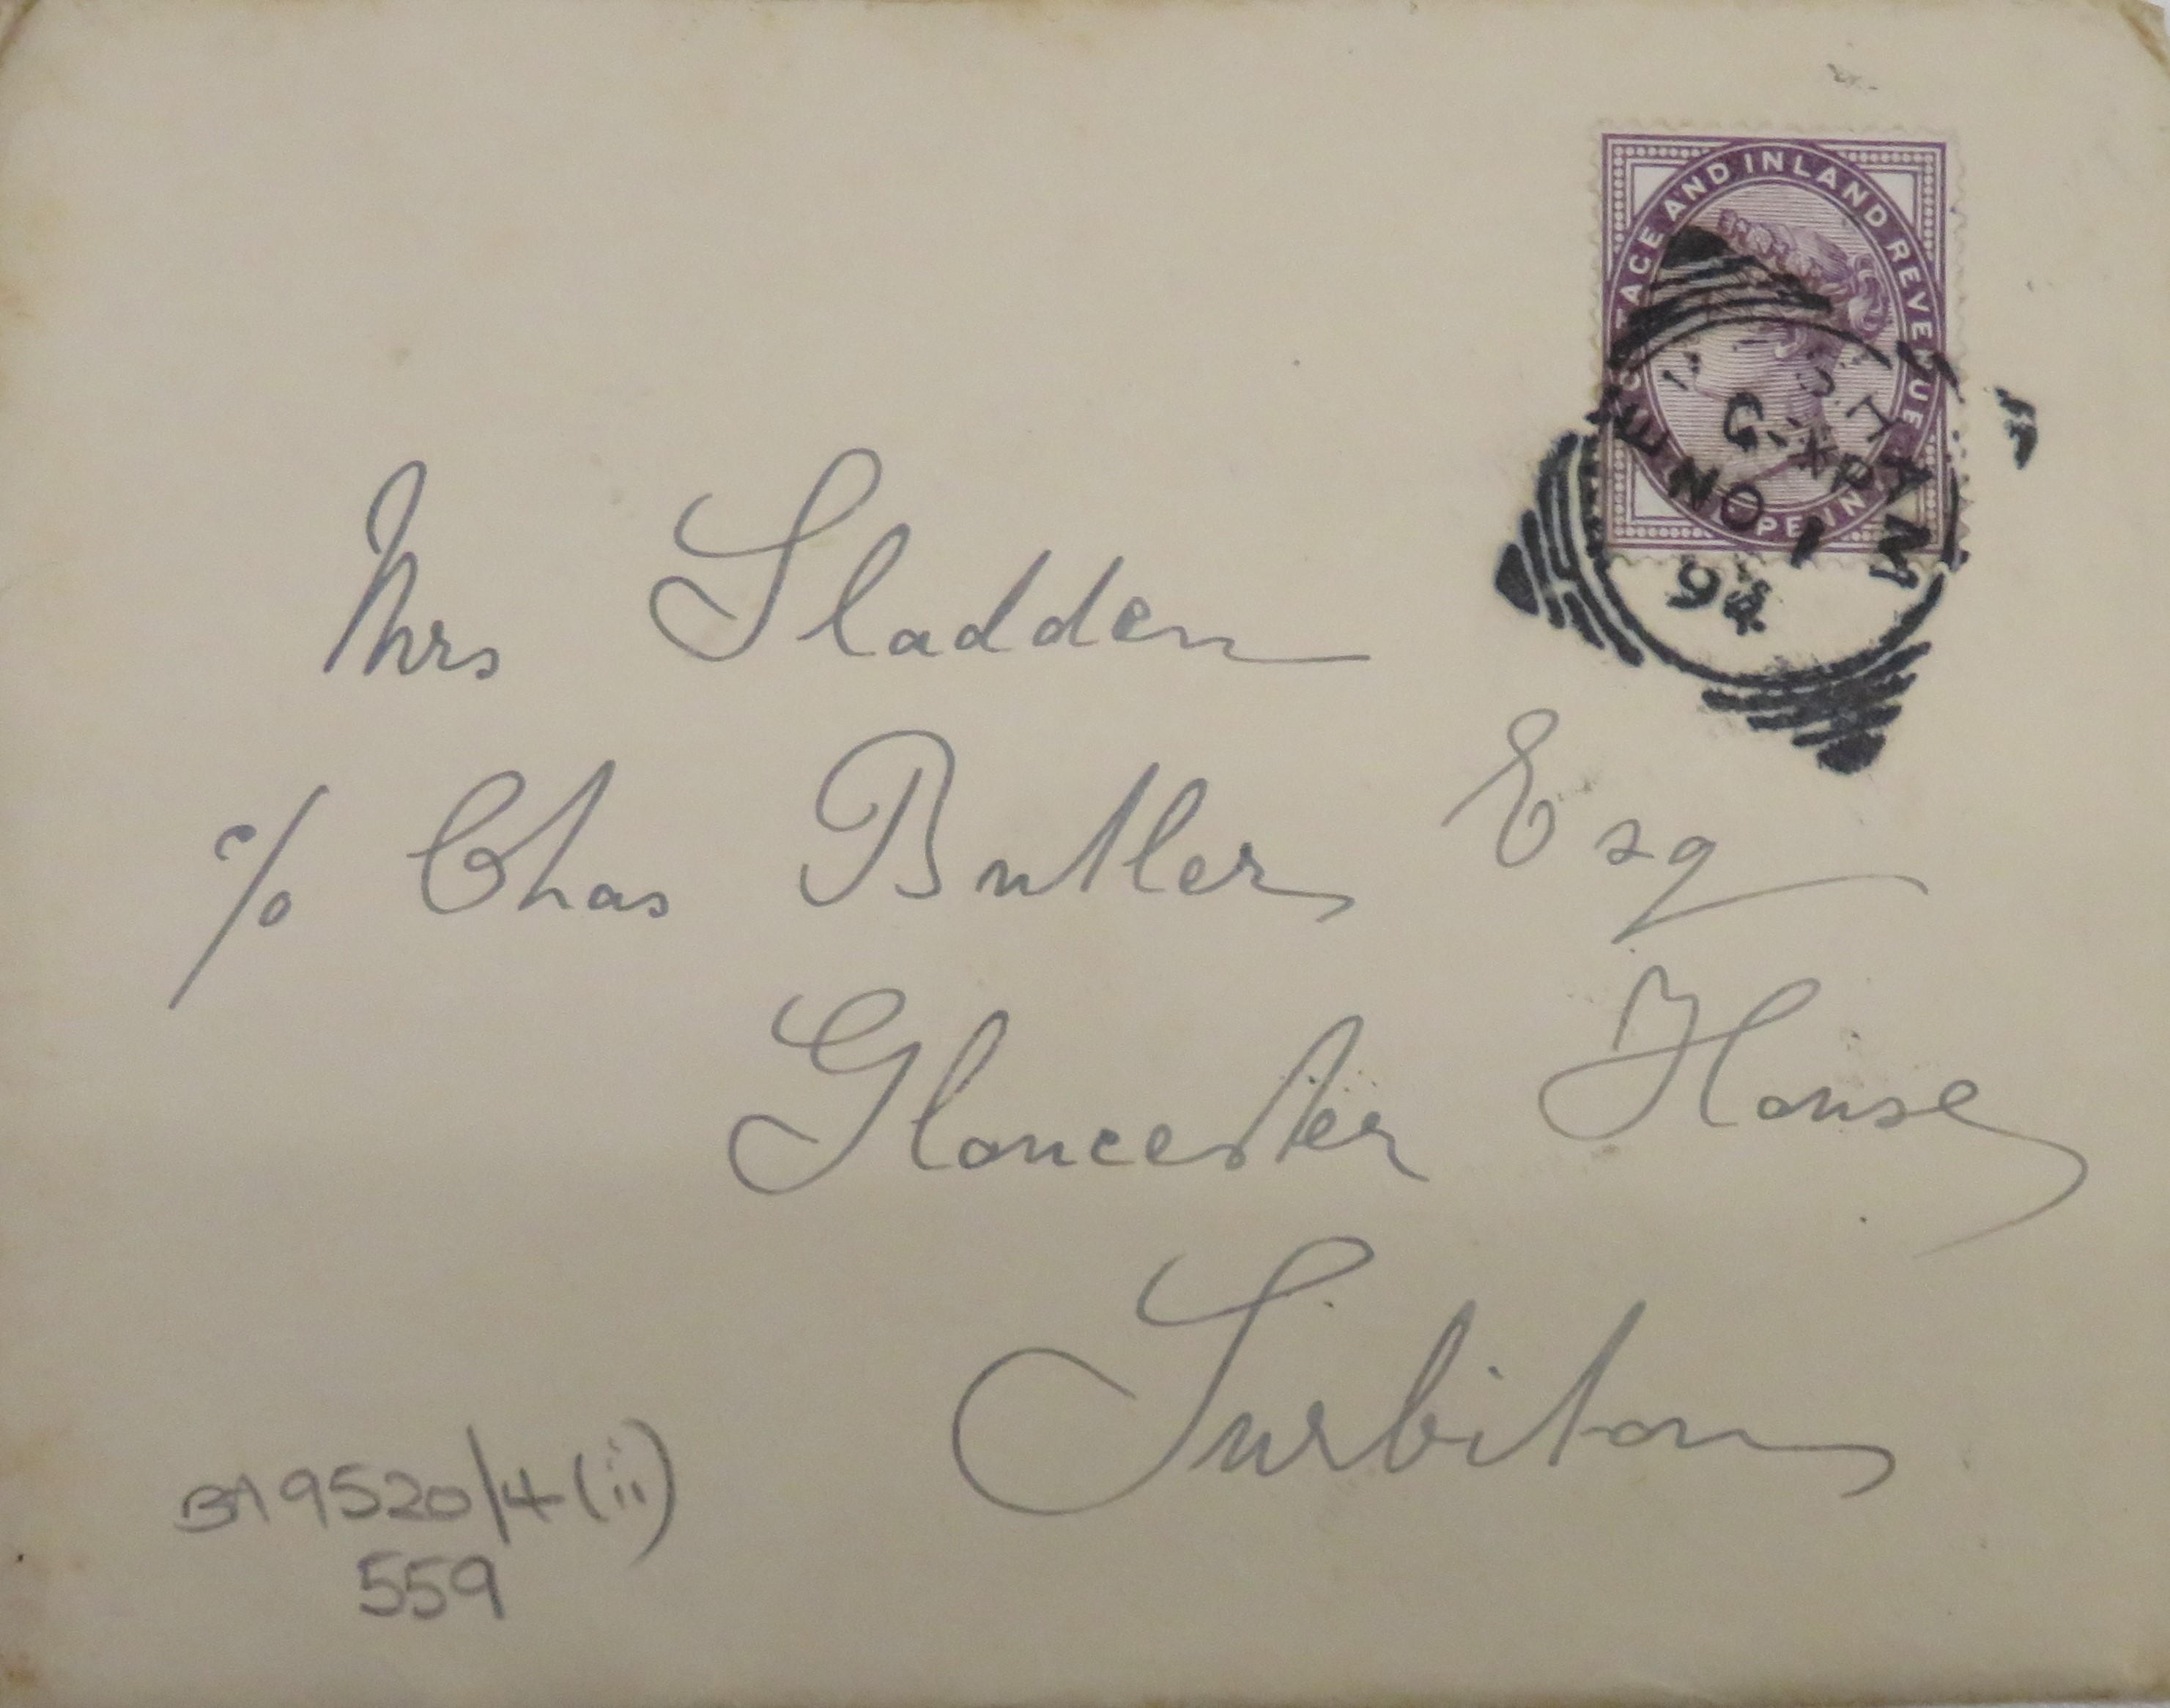 POSTAGE AND INLAND REVENUE
ONE PENNY
NO 1
94
Mrs Sladden
c/o Chas Butler Esq
Gloucester House
Surbiton
BA9520/4(ii)
559